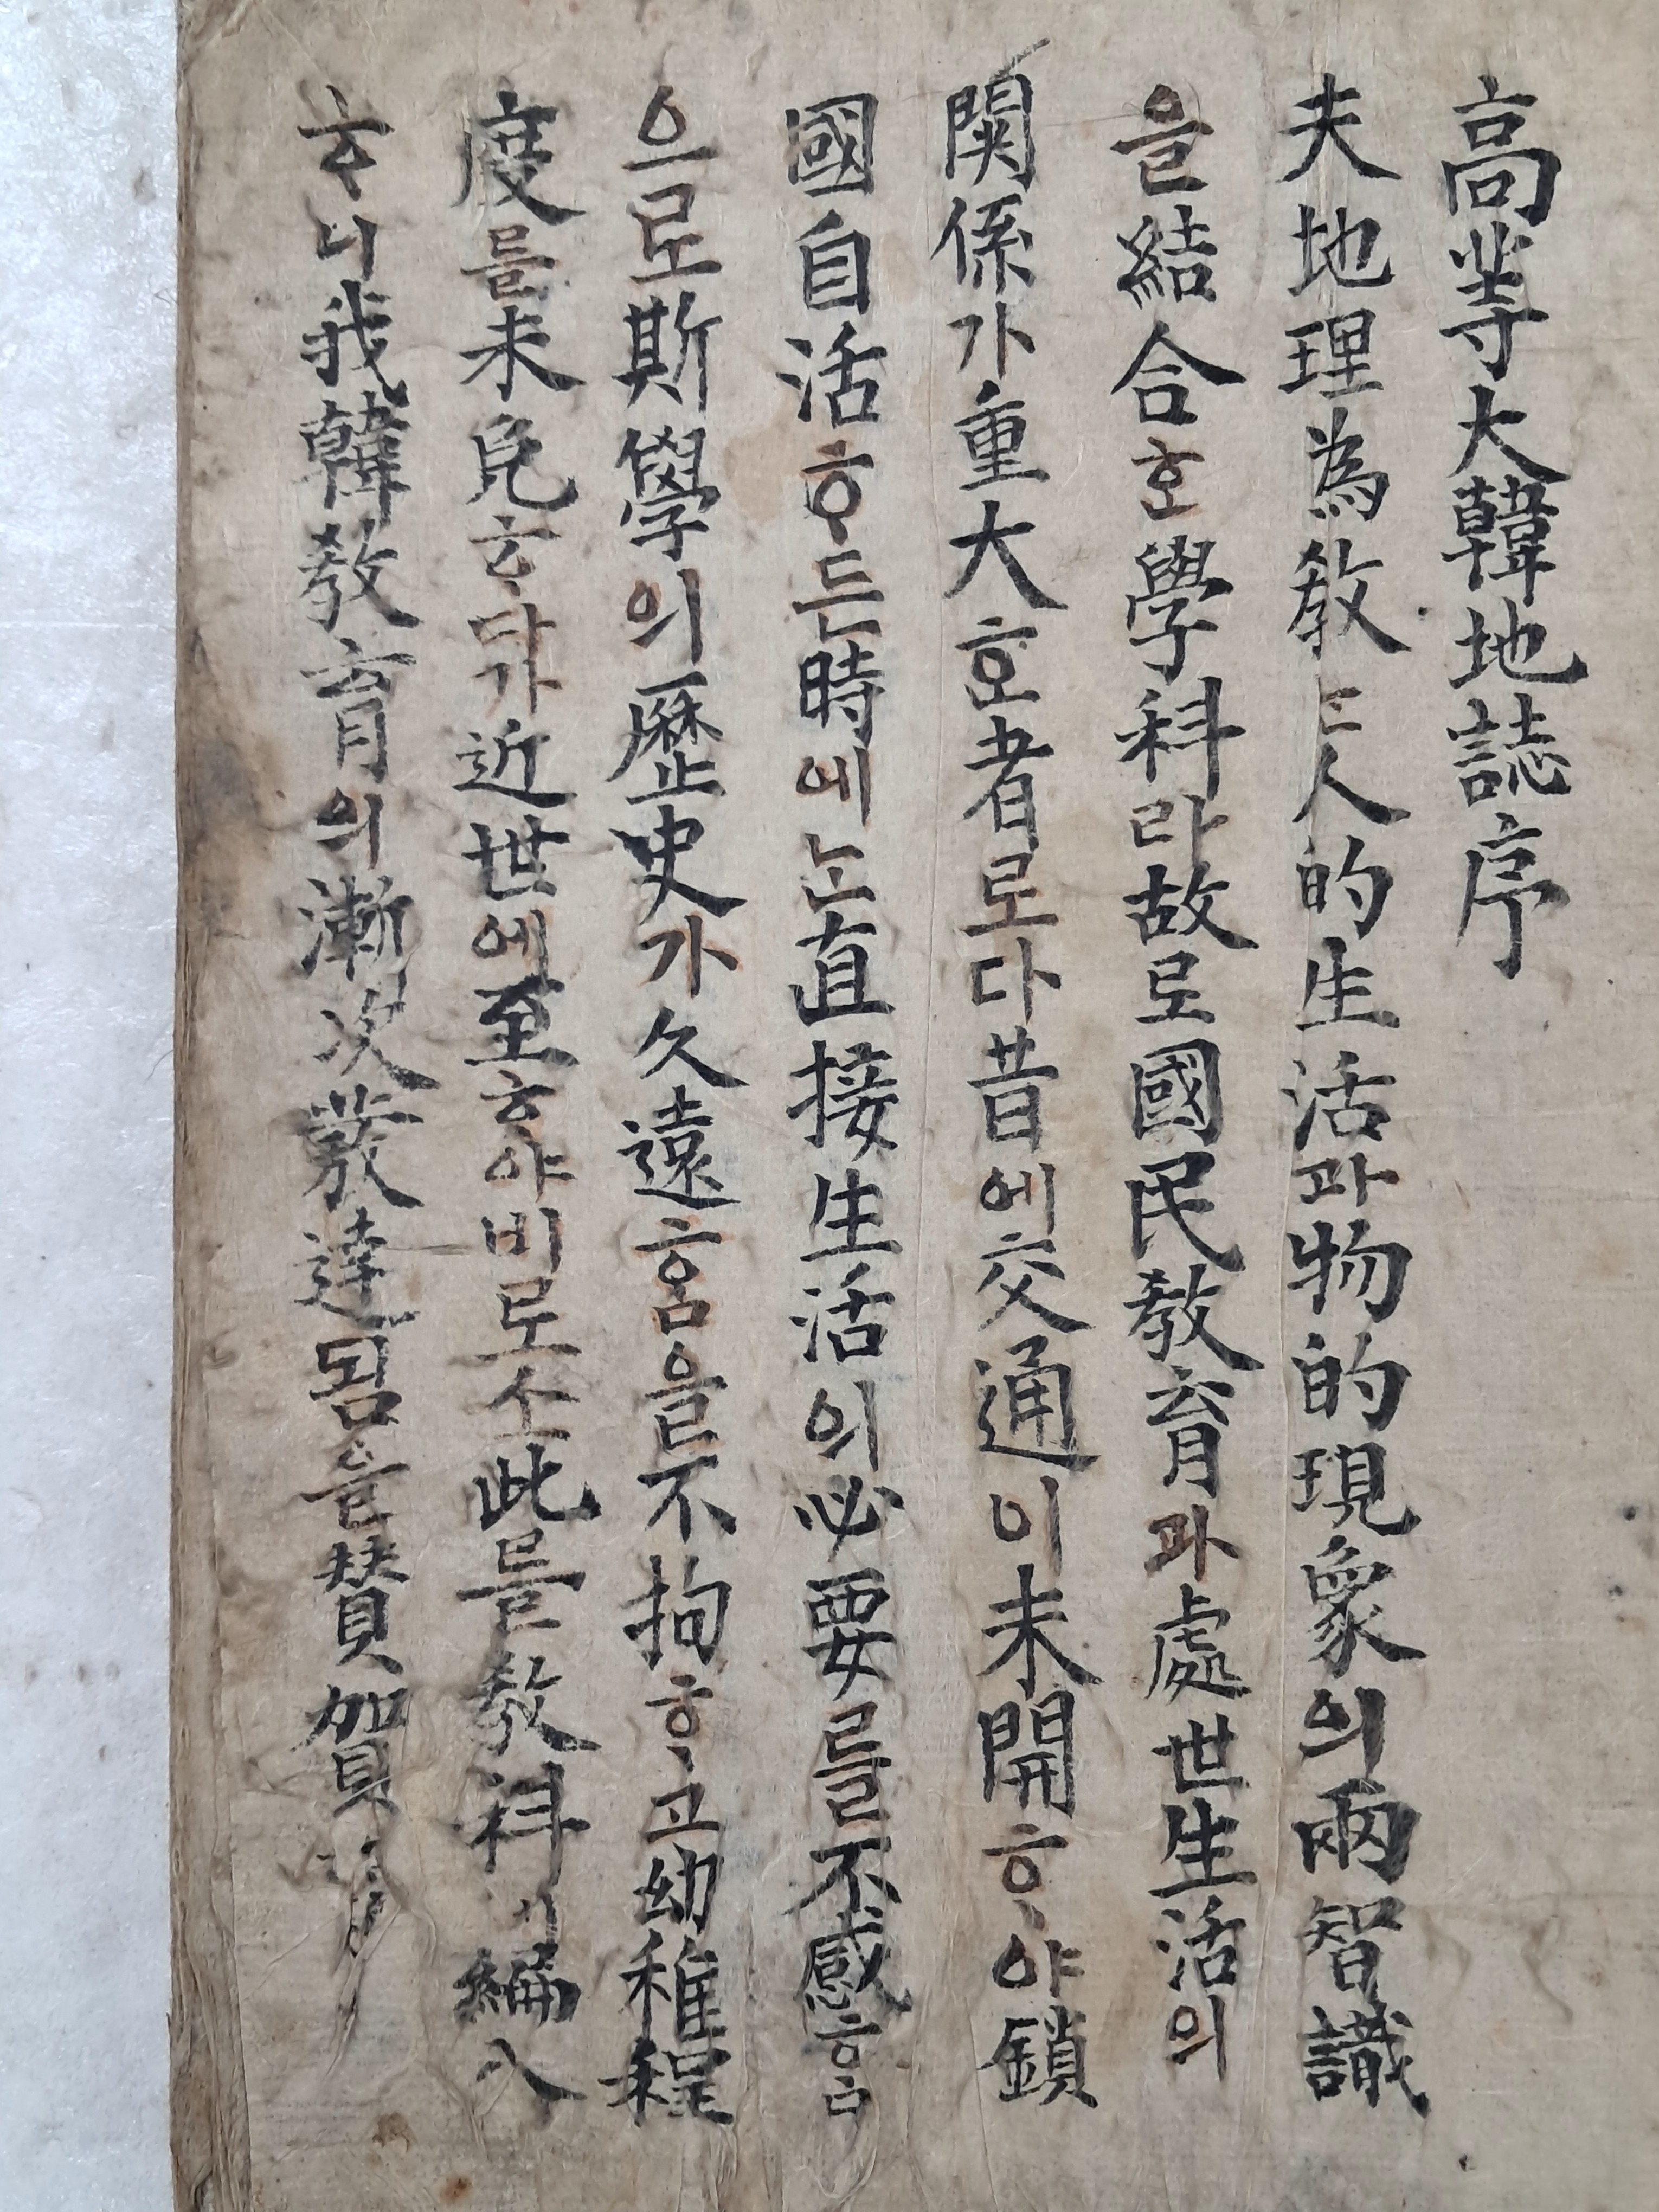 高等大韓地誌序
夫地理爲敎と人的生活과物的現象의兩智識
을結合ᄒᆞᆫ學科라故로國民敎育과處世生活의
関係가重大ᄒᆞᆫ者로다昔에交通이未開ᄒᆞ야鎖
國自活ᄒᆞ든時에ᄂᆞᆫ直接生活의必要를不感ᄒᆞᆷ
으로斯學의歷史가久遠ᄒᆞᆷ을不拘ᄒᆞ고幼稚程
度를未免ᄒᆞ다가近世에至ᄒᆞ야비로소此를敎科에編入
ᄒᆞ니我韓敎育의漸次發達됨을贊賀